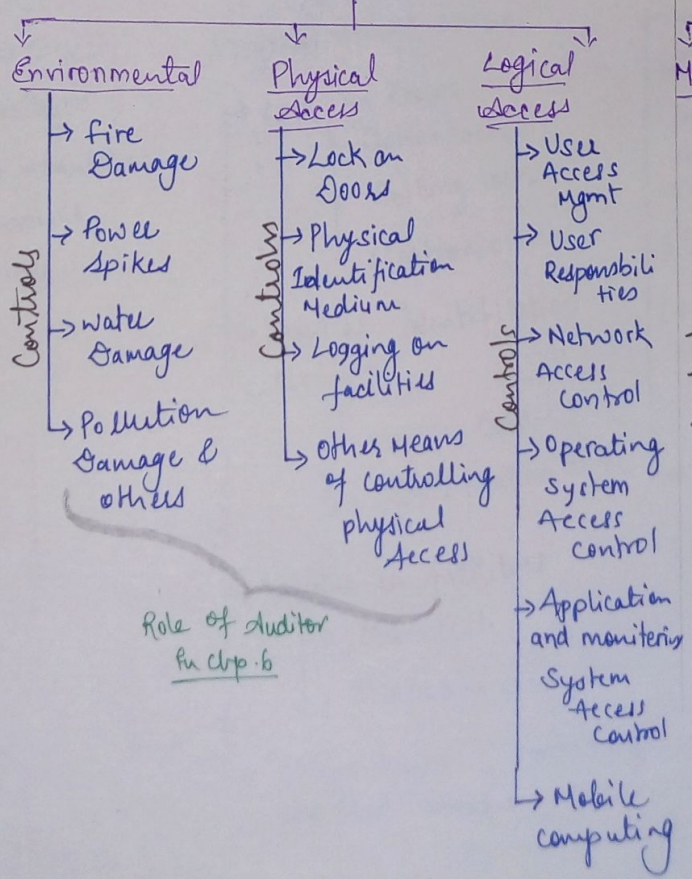 Environmental
Controls
Fire
Damage
Power
Spikes
Water
Damage
Pollution
Damage &
others
Physical
Access
Controls
Lock on
Doors
Physical
Identification
Medium
Logging on
facilities
Other Means
of controlling
physical
Access
Logical
Access
Controls
User
Access
Mgmt
User
Responsbili
ties
Network
Access
Control
Operating
System
Access
Control
Application
and monitering
System
Access
Control
Mobile
computing
Role of Auditor
in chp.6
M